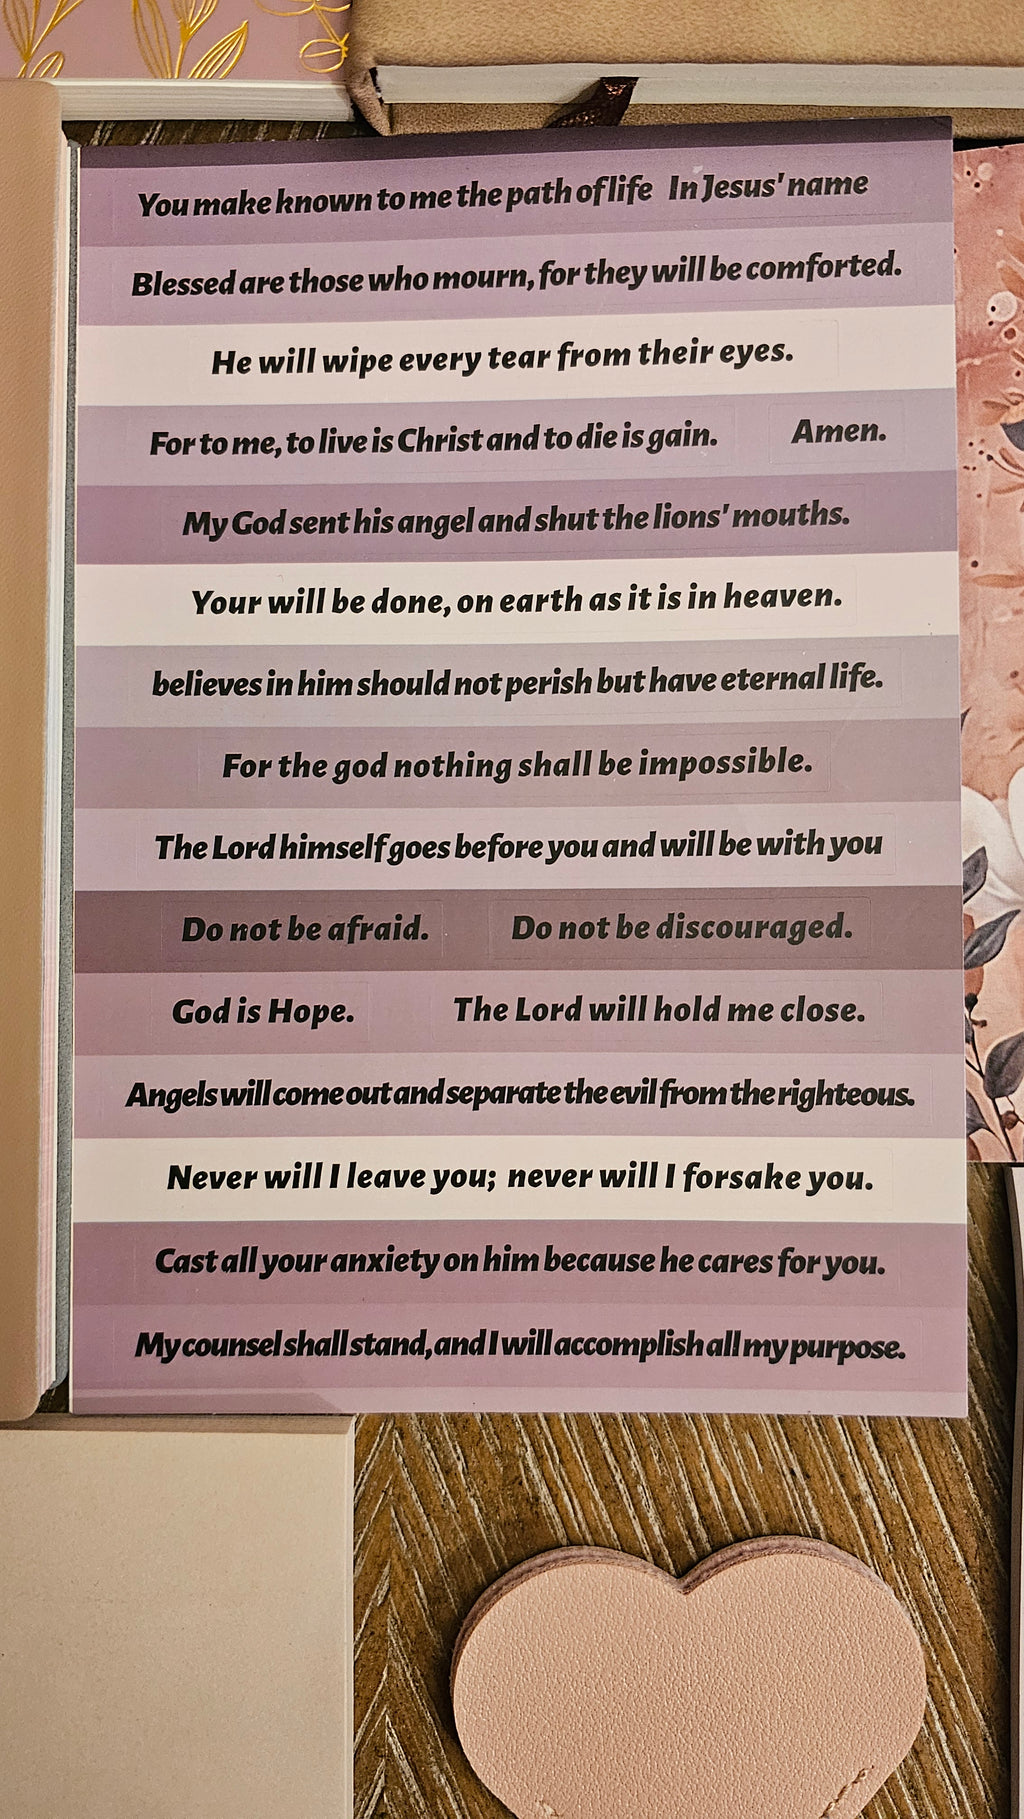 You make known to me the path of life In Jesus' name
Blessed are those who mourn, for they will be comforted.
He will wipe every tear from their eyes.
For to me, to live is Christ and to die is gain. Amen.
My God sent his angel and shut the lions' mouths.
Your will be done, on earth as it is in heaven.
believes in him should not perish but have eternal life.
For the god nothing shall be impossible.
The Lord himself goes before you and will be with you
Do not be afraid. Do not be discouraged.
God is Hope. The Lord will hold me close.
Angels will come out and separate the evil from the righteous.
Never will I leave you; never will I forsake you.
Cast all your anxiety on him because he cares for you.
My counsel shall stand, and I will accomplish all my purpose.